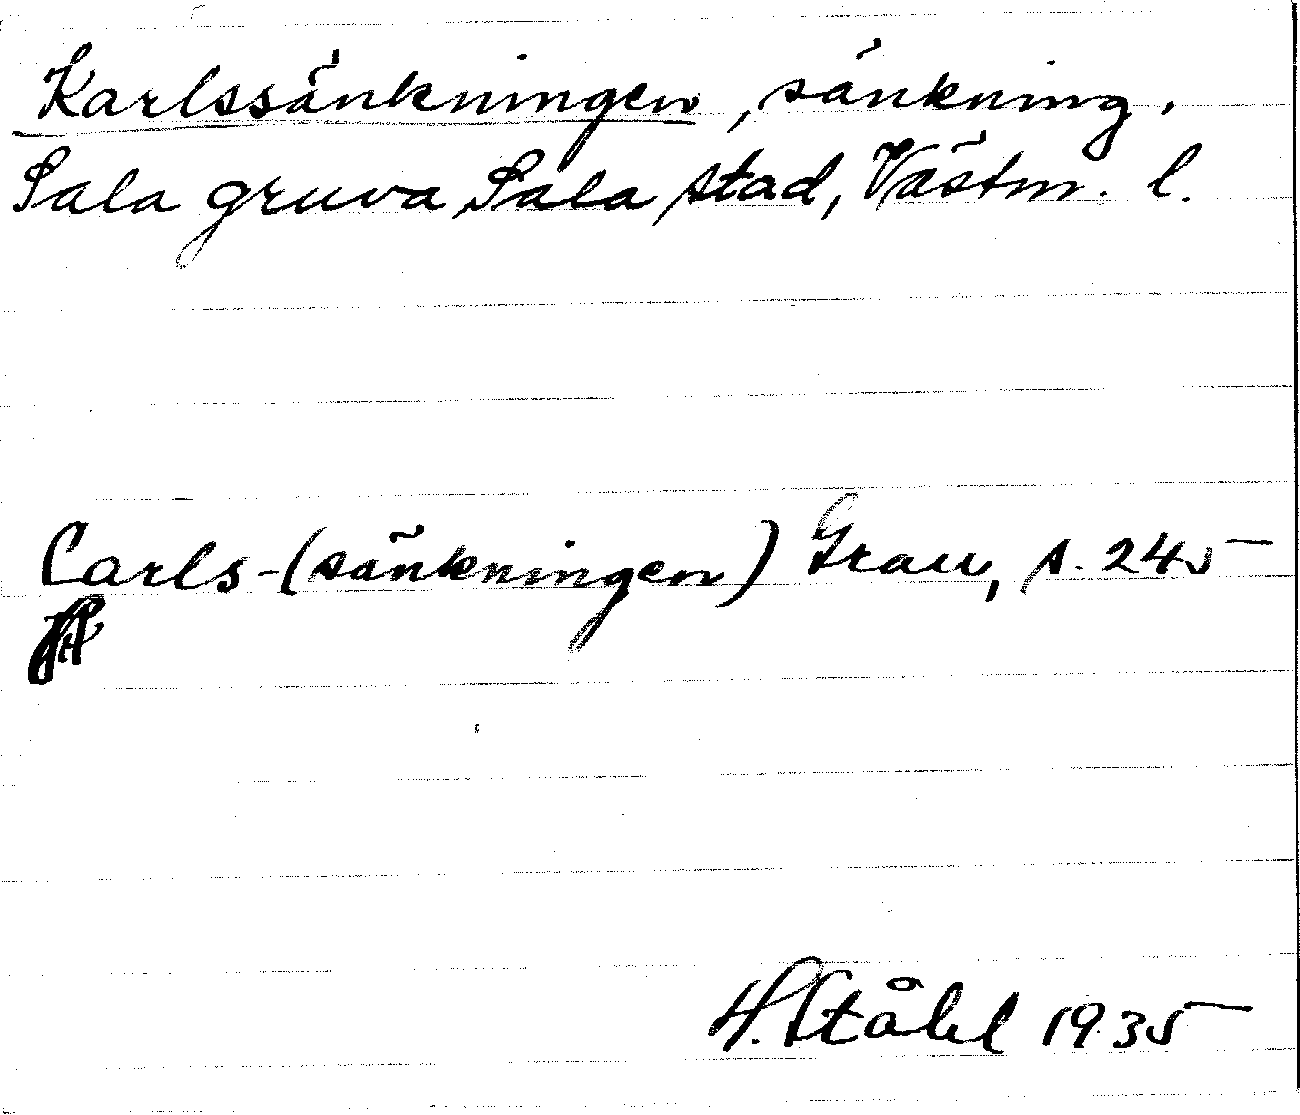 Karlssänkningen, sänkning.
Sala gruva, Sala stad, Västm. l.
Carls-(sänkningen) Grau, s. 245
H. Ståhl 1935